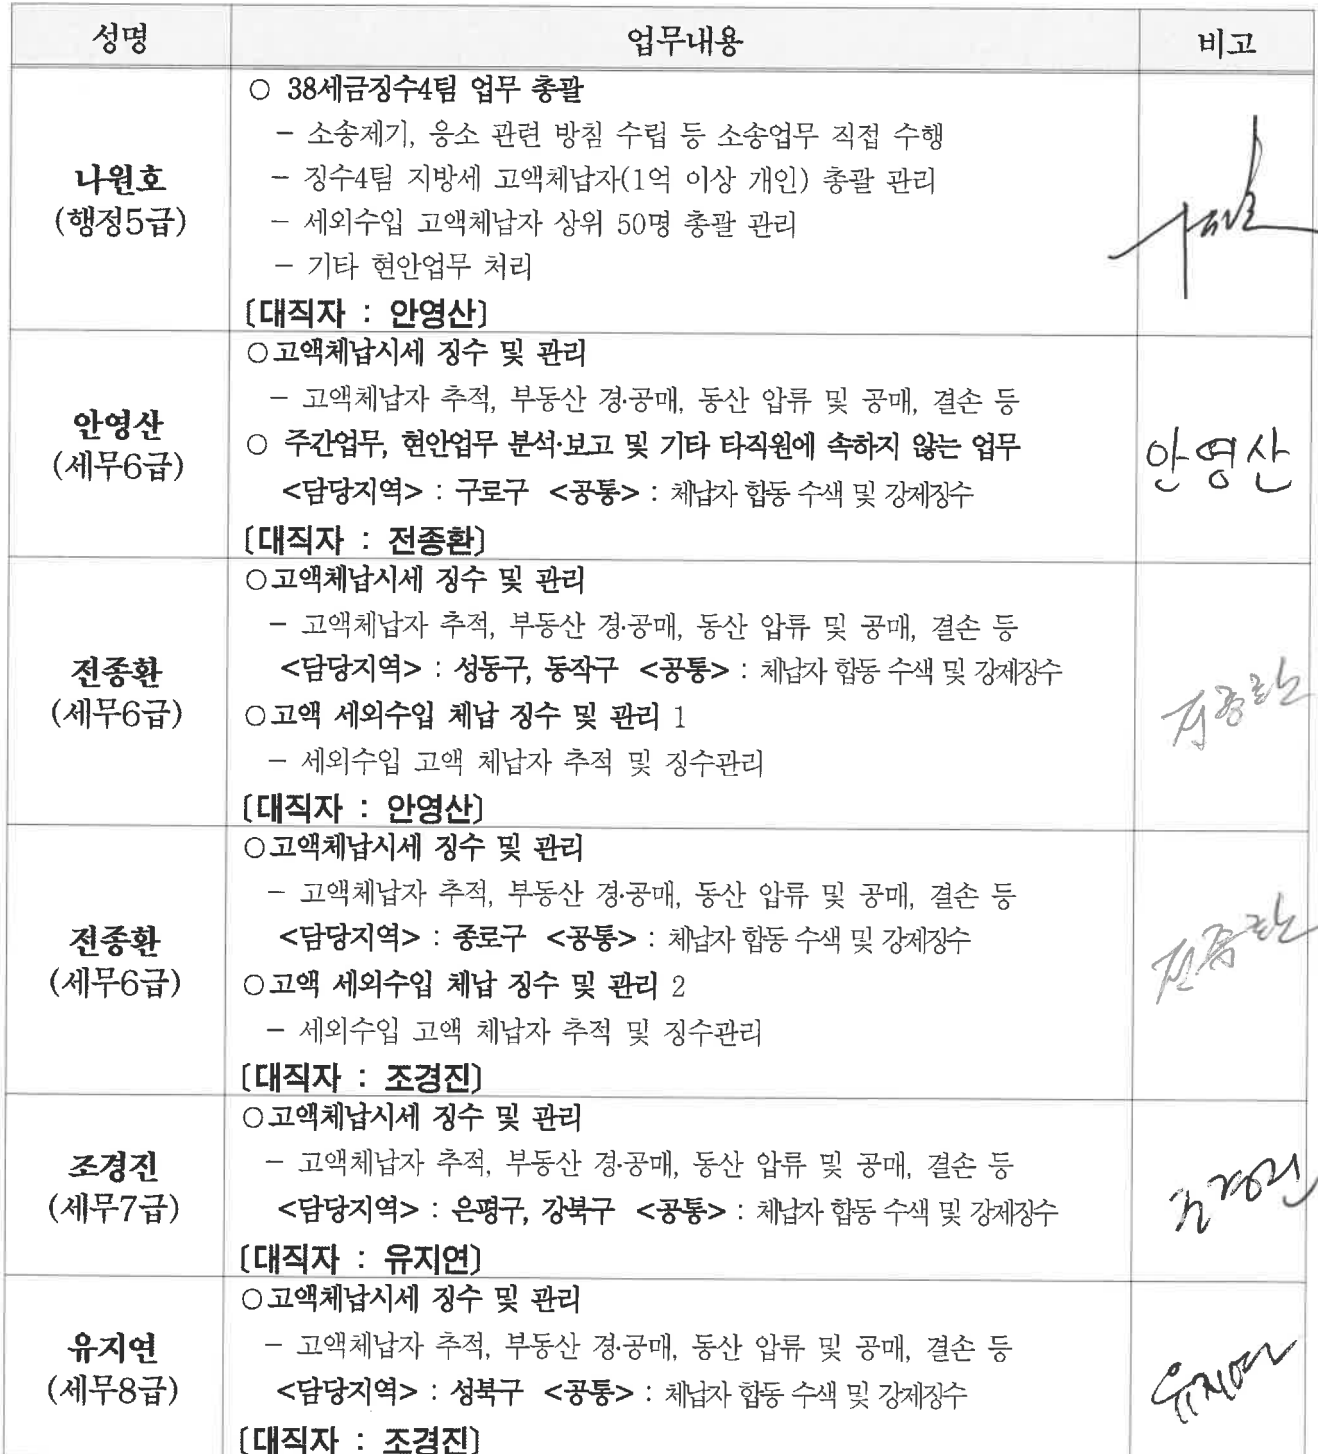 성명 업무내용 비고
○ 38세금징수4팀 업무 총괄
- 소송제기, 응소 관련 방침 수립 등 소송업무 직접 수행
- 징수4팀 지방세 고액체납자(1억 이상 개인) 총괄 관리
- 세외수입 고액체납자 상위 50명 총괄 관리
- 기타 현안업무 처리
[대직자 : 안영산]
나원호
(행정5급)
○고액체납시세 징수 및 관리
- 고액체납자 추적, 부동산 경·공매, 동산 압류 및 공매, 결손 등
○ 주간업무, 현안업무 분석·보고 및 기타 타직원에 속하지 않는 업무
<담당지역> : 구로구 <공통> : 체납자 합동 수색 및 강제징수
[대직자 : 전종환]
안영산
(세무6급)
안영산
○고액체납시세 징수 및 관리
- 고액체납자 추적, 부동산 경·공매, 동산 압류 및 공매, 결손 등
<담당지역> : 성동구, 동작구 <공통> : 체납자 합동 수색 및 강제징수
○고액 세외수입 체납 징수 및 관리 1
- 세외수입 고액 체납자 추적 및 징수관리
[대직자 : 안영산]
전종환
(세무6급)
전종환
○고액체납시세 징수 및 관리
- 고액체납자 추적, 부동산 경·공매, 동산 압류 및 공매, 결손 등
<담당지역> : 종로구 <공통> : 체납자 합동 수색 및 강제징수
○고액 세외수입 체납 징수 및 관리 2
- 세외수입 고액 체납자 추적 및 징수관리
[대직자 : 조경진]
전종환
(세무6급)
전종환
○고액체납시세 징수 및 관리
- 고액체납자 추적, 부동산 경·공매, 동산 압류 및 공매, 결손 등
<담당지역> : 은평구, 강북구 <공통> : 체납자 합동 수색 및 강제징수
[대직자 : 유지연]
조경진
(세무7급)
조경진
○고액체납시세 징수 및 관리
- 고액체납자 추적, 부동산 경·공매, 동산 압류 및 공매, 결손 등
<담당지역> : 성북구 <공통> : 체납자 합동 수색 및 강제징수
[대직자 : 조경진]
유지연
(세무8급)
유지연